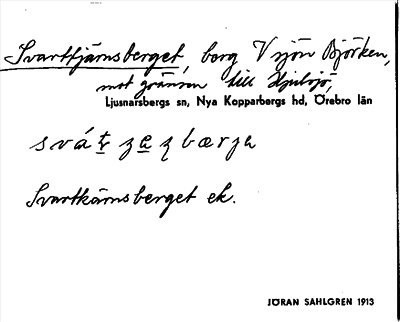 Svarttjärnsberget, berg V sjön Björken,
mot gränsen till Hjulsjö,
Ljusnarsbergs sn, Nya Kopparbergs hd, Örebro län
svát za bærja
Svartkärnsberget ek.
JÖRAN SAHLGREN 1913